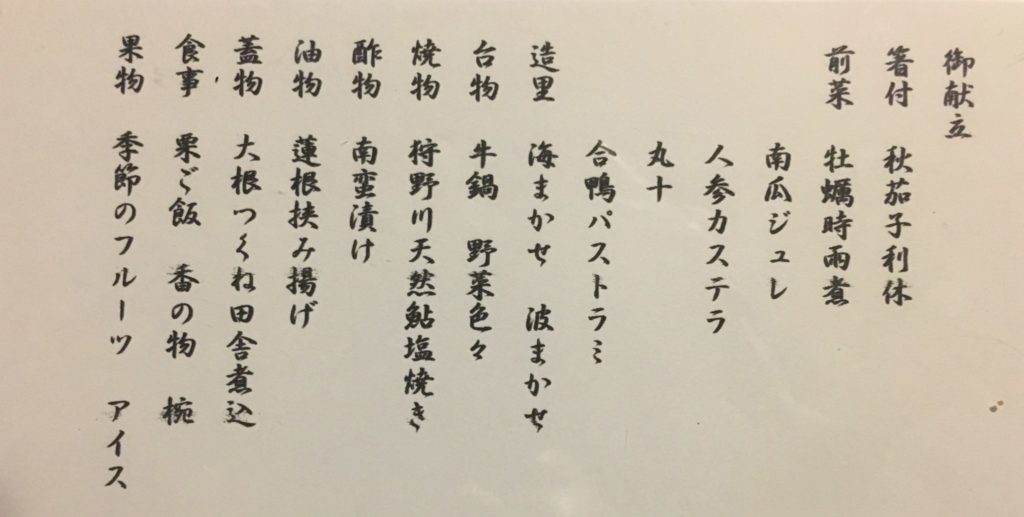 御献立
箸付 秋茄子利休
前菜 牡蠣時雨煮
南瓜ジュレ
人参カステラ
丸十
合鴨パストラミ
造里 海まかせ 波まかせ
台物 牛鍋 野菜色々
焼物 狩野川天然鮎塩焼き
酢物 南蛮漬け
油物 蓮根挟み揚げ
蓋物 大根つくね田舎煮込
食事 栗ご飯 香の物 椀
果物 季節のフルーツ アイス